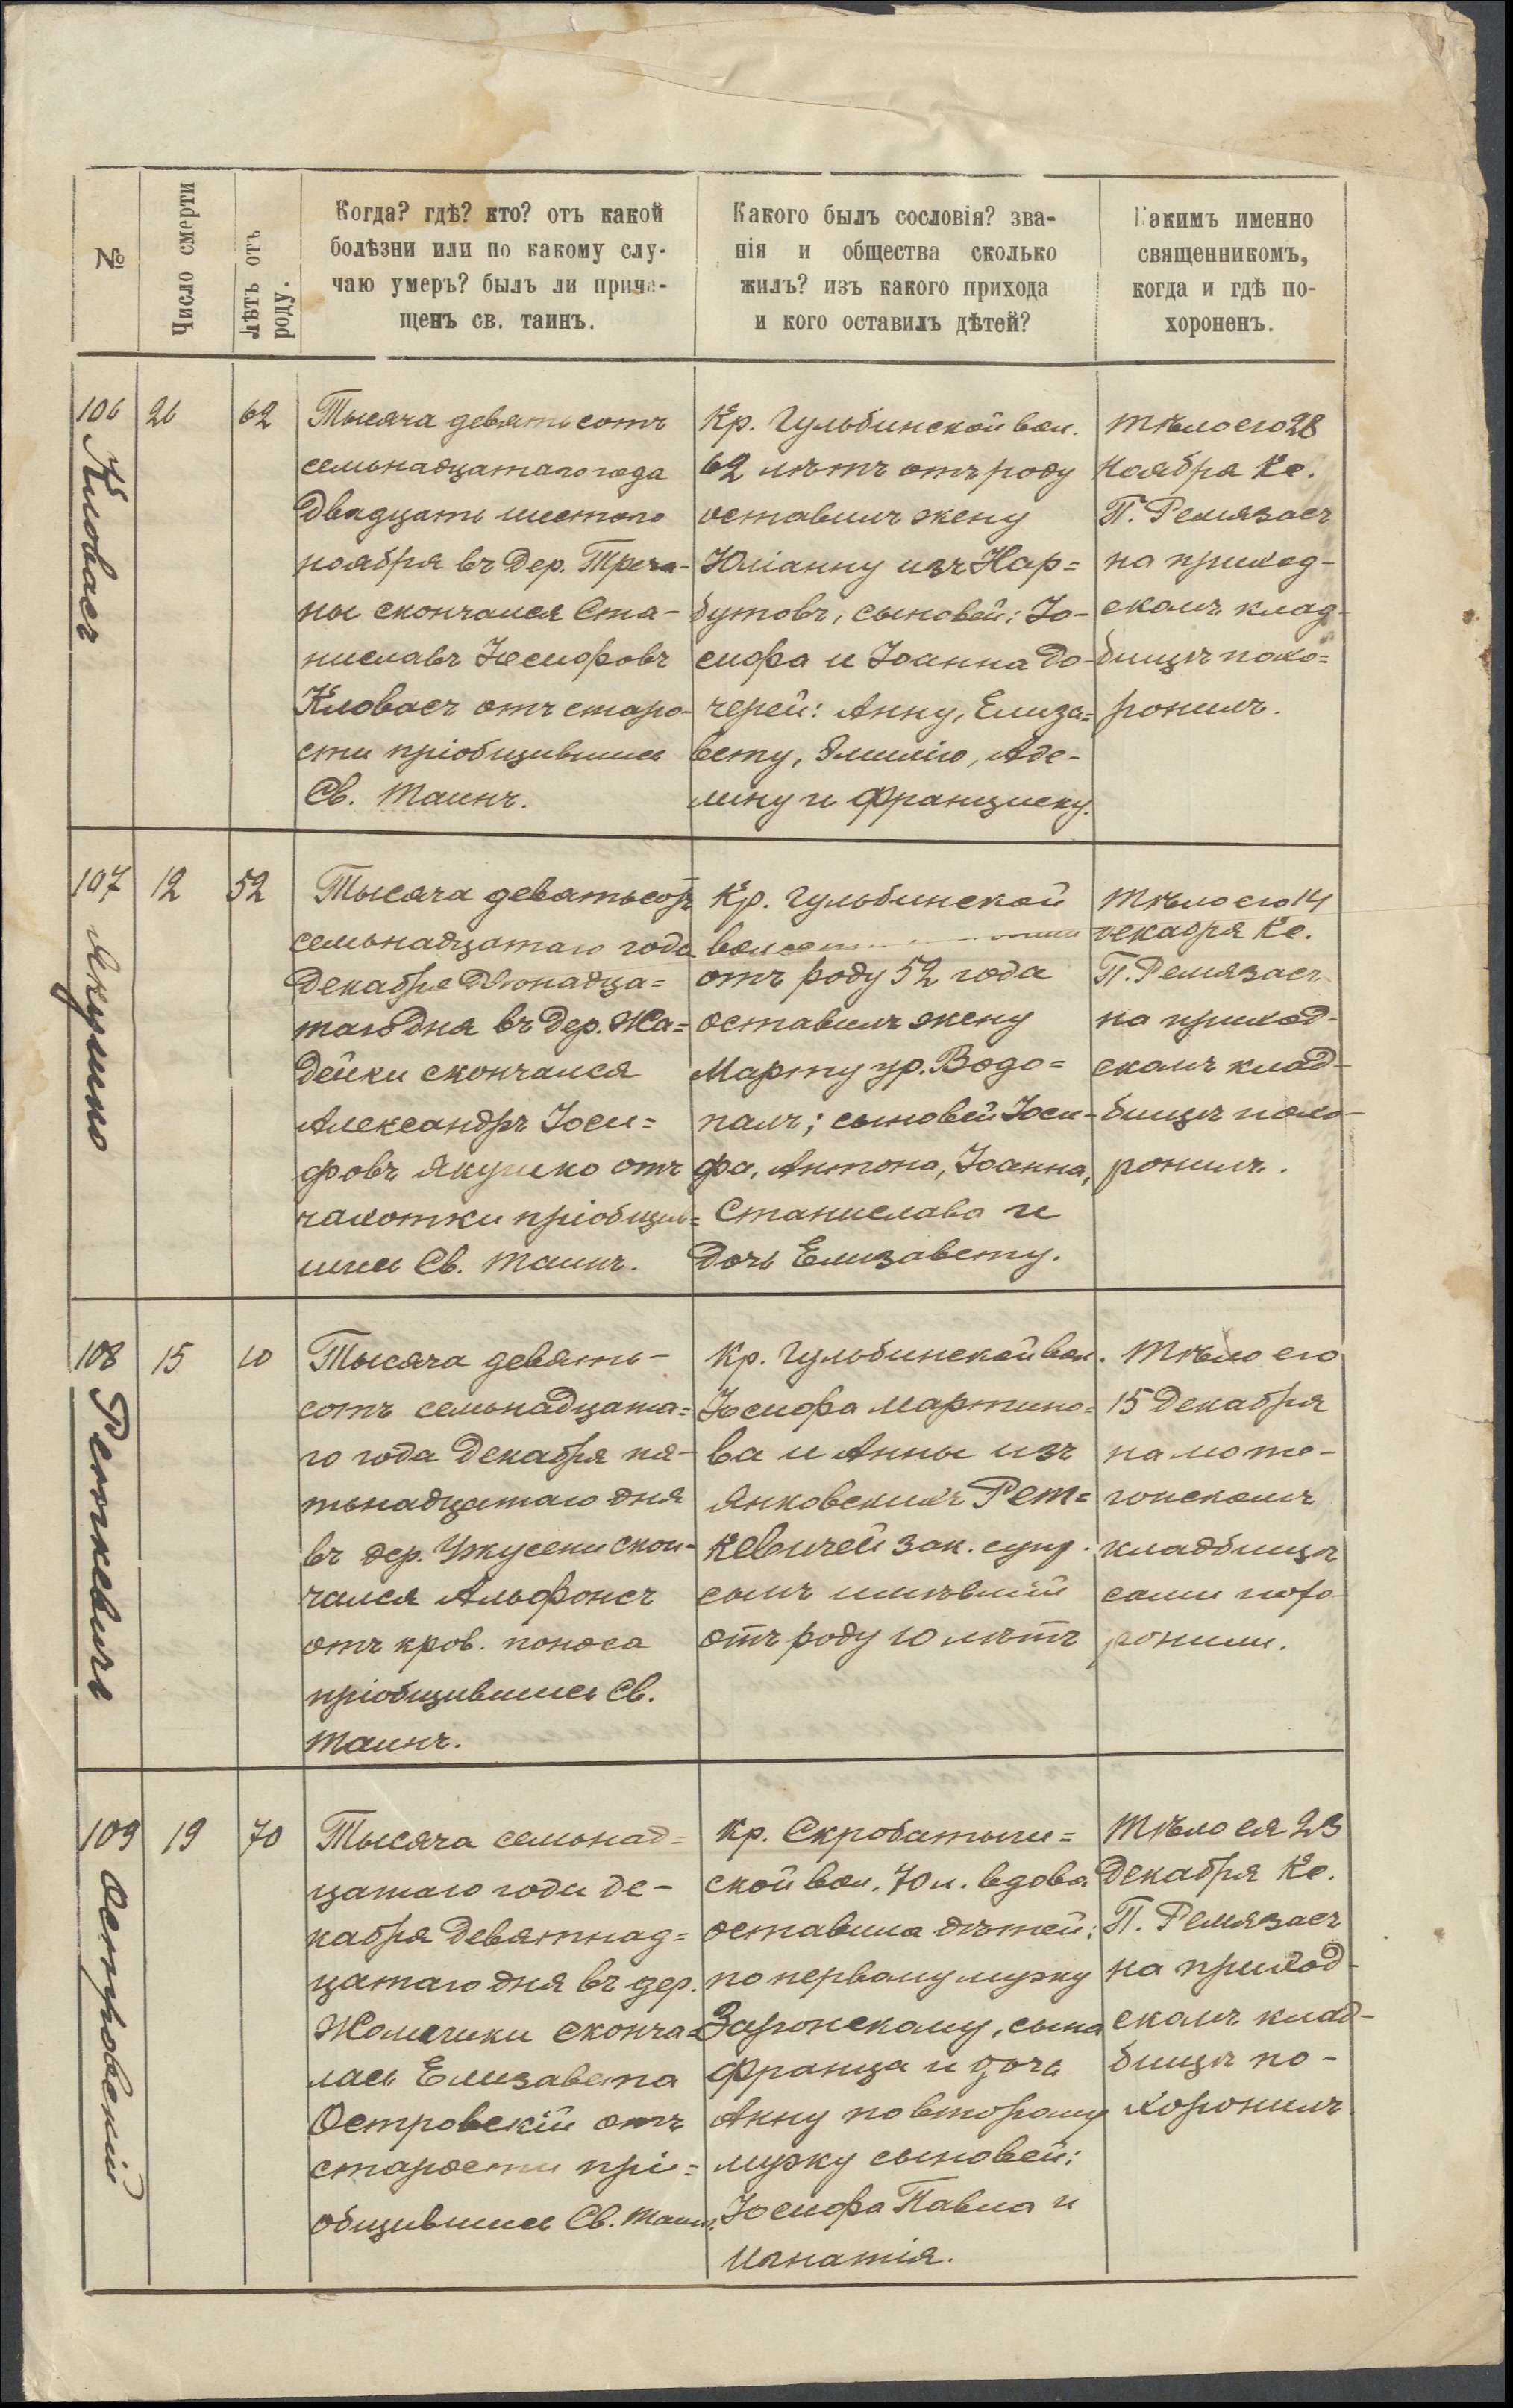 №
Число смерти
Лѣтъ отъ
роду.
Когда? гдѣ? кто? отъ какой
болѣзни или по какому слу-
чаю умеръ? былъ ли прича-
щенъ св. таинъ.
Какого былъ сословія? зва-
нія и общества сколько
жилъ? изъ какого прихода
и кого оставилъ дѣтей?
Какимъ именно
священникомъ,
когда и гдѣ по-
хороненъ.
106
Кловасъ
26
62
Тысяча девятьсотъ
семьнадцатаго года
двадцать шестого
ноября въ дер. Треча-
ны скончался Ста-
ниславъ Іосифовъ
Кловасъ отъ старо-
сти пріобщившись
Св. Таинъ.
Кр. Гульбинской вол.
62 лѣтъ отъ роду
оставилъ жену
Юліанну изъ Нар=
бутовъ, сыновей: Іо-
сифа и Іоанна до-
черей: Анну, Елиза=
вету, Эмилію, Аде-
лину и Франциску.
Тѣло его 28
Ноября Кс.
П. Ремязасъ
на приход-
скомъ клад-
бищѣ похо=
ронилъ.
107
Якушко
12
52
Тысяча девятьсотъ
семьнадцатаго года
Декабря двѣнадца=
таго дня въ дер. Жа=
дейки скончался
Александръ Іоси=
фовъ Якушко отъ
чахотки пріобщив=
шись Св. Таинъ.
Кр. Гульбинской
отъ роду 52 года
оставилъ жену
Марту ур. Водо=
палъ; сыновей Іоси-
фа, Антона, Іоанна,
Станислава и
дочь Елизавету.
Тѣло его 14
декабря Кс.
П. Ремязасъ
на приход-
скомъ клад-
бищѣ похо-
ронилъ.
108
Реткевичъ
15
10
Тысяча девять-
сотъ семьнадцата=
го года Декабря пя-
тьнадцатаго дня
въ дер. Ужусени скон-
чался Альфонсъ
отъ кров. поноса
пріобщившись Св.
Таинъ.
Кр. Гульбинской вол.
Іосифа Мартино=
ва и Анны изъ
Янковскихъ Рет=
кевичей зак. супр.
сынъ имѣвшій
отъ роду 10 лѣтъ
Тѣло его
15 Декабря
на
кладбищѣ
сами похо-
ронили.
109
Островскій
19
70
Тысяча семьнад=
цатаго года де-
кабря девятнад=
цатаго дня въ дер.
сконча=
лась Елизавета
Островскій отъ
старости прі=
общившись Св. Таинъ.
Кр.
ской вол. 70 л. вдова
оставила дѣтей:
по первому мужу
Загонскому, сына
Франца и дочь
Анну по второму
мужу сыновей:
Іосифа Павла и
Игнатія.
Тѣло ея 23
Декабря Кс.
П. Ремязасъ
на приход-
скомъ клад-
бищѣ по-
хоронилъ.